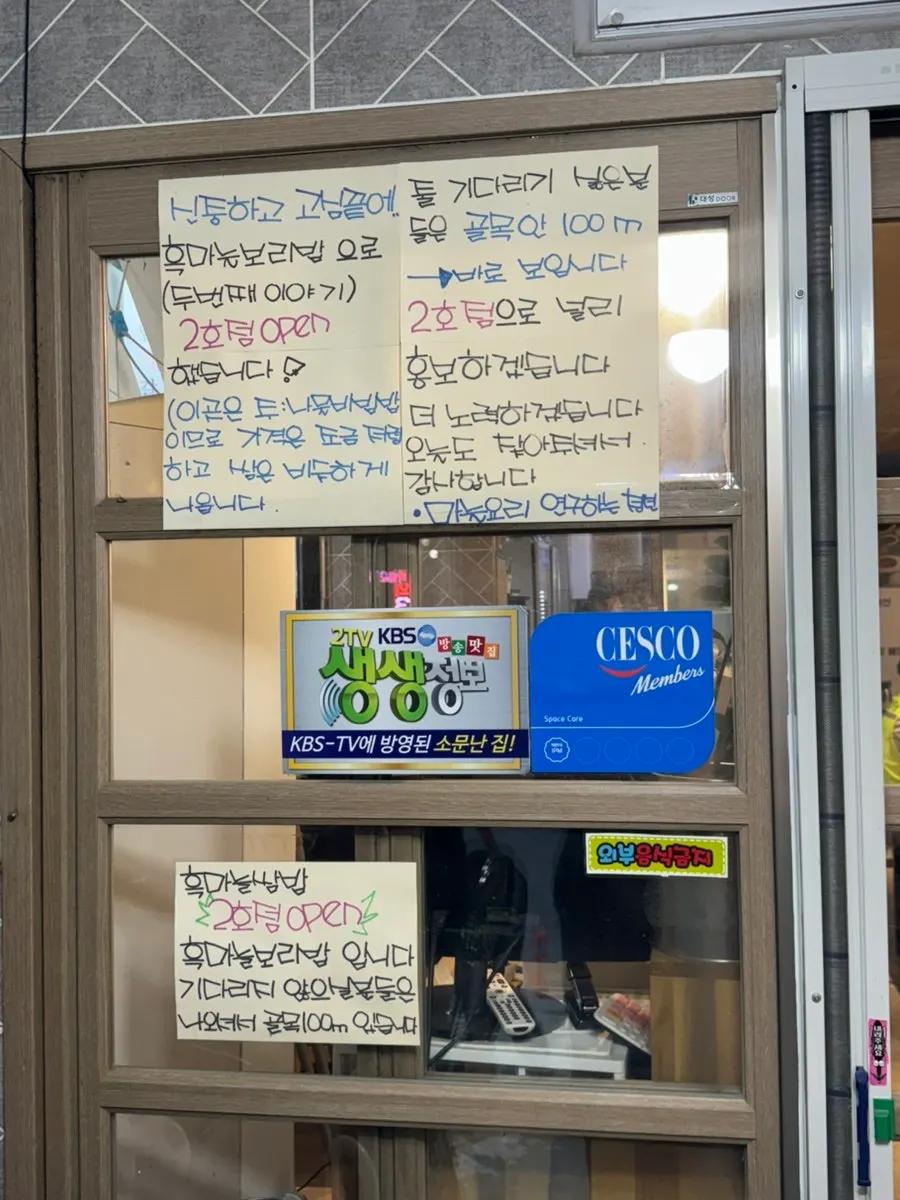 신통하고 고심끝에..
흑마늘보리밥 으로
(두번째이야기)
2호점 open
했습니다!
(이곳은 두:나물비빔밥
이므로 가격은 조금 저렴
하고 쌈은 비슷하게
나옵니다.
기다리기 싫은분
들은 골목안 100m
→바로 보입니다
2호점으로 널리
홍보하겠습니다
더 노력하겠습니다
오늘도 찾아주셔서.
감사합니다
•마늘요리 연구하는
대성DOOR
2TV KBS 방송맛집
생생정보
KBS-TV에 방영된 소문난 집!
CESCO
Members
Space Care
외부음식금지
흑마늘쌈밥
2호점 open
흑마늘보리밥 입니다
기다리지 않으실분들은
나오셔서 골목100m 있습니다
내려주세요